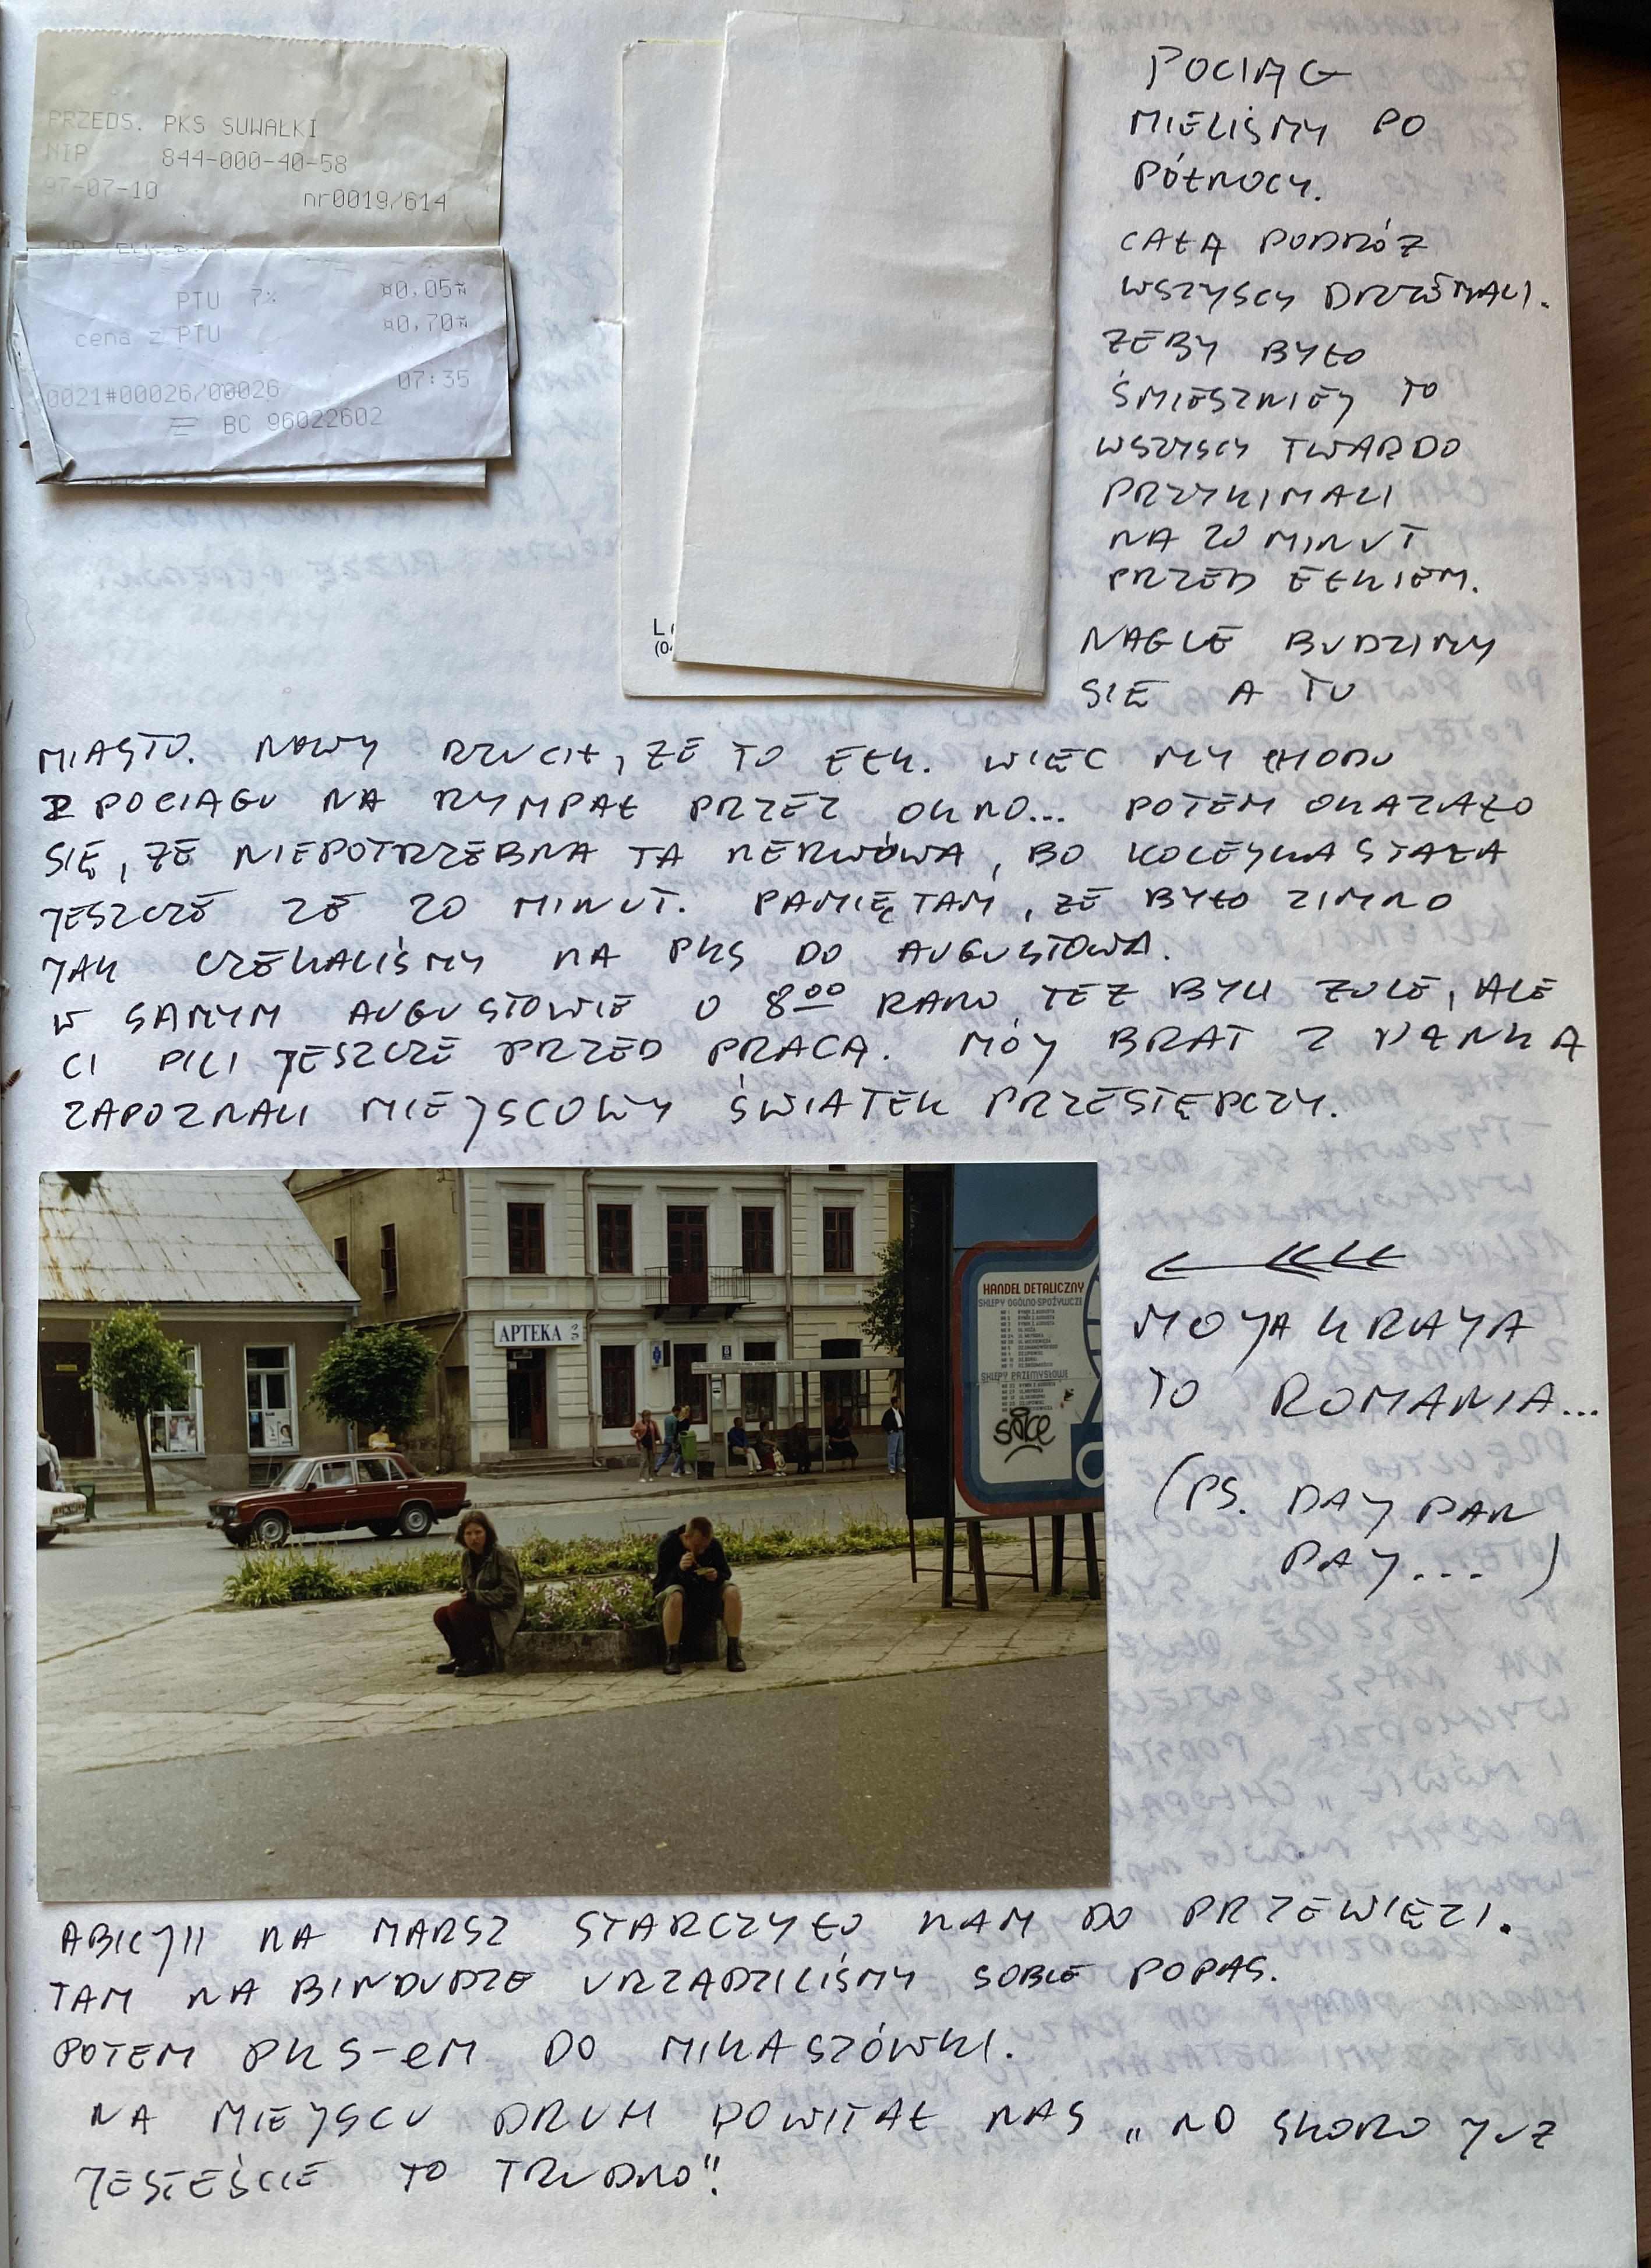 PRZEDS. PKS SUWAŁKI
NIP 844-000-40-58
97-07-10 nr0019/614
PTU 7% ¤0,05¤
cena z PTU ¤0,70¤
0021#00026/00026 07:35
BC 96022602
POCIĄG
MIELIŚMY PO
PÓŁNOCY.
CAŁĄ PODRÓŻ
WSZYSCY DRZEMALI.
ŻEBY BYŁO
ŚMIESZNIEJ TO
WSZYSCY TWARDO
PRZYKIMALI
NA 20 MINUT
PRZED EŁKIEM.
NAGLE BUDZIMY
SIĘ A TU
MIASTO. NOWY RZUCIŁ, ŻE TO EŁK. WIĘC MY CHODU
Z POCIĄGU NA RYMPAŁ PRZEZ OKNO... POTEM OKAZAŁO
SIĘ, ŻE NIEPOTRZEBNA TA NERWÓWA, BO KOLEJKA STAŁA
JESZCZE ZE 20 MINUT. PAMIĘTAM, ŻE BYŁO ZIMNO
JAK CZEKALIŚMY NA PKS DO AUGUSTOWA.
W SAMYM AUGUSTOWIE O 8⁰⁰ RANO TEŻ BYLI ŻULE, ALE
CI PILI JESZCZE PRZED PRACĄ. MÓJ BRAT Z
ZAPOZNALI MIEJSCOWY ŚWIATEK PRZESTĘPCZY.
APTEKA
HANDEL DETALICZNY
SKLEPY OGÓLNO-SPOŻYWCZE
SKLEPY PRZEMYSŁOWE
MOJA KRAJA
TO ROMANIA...
(PS. DAJ PAN
PAJ...)
ABICJII NA MARSZ STARCZYŁO NAM DO PRZEWIĘZI.
TAM NA BINDUDZE URZĄDZILIŚMY SOBIE POPAS.
POTEM PKS-eM DO MIKASZÓWKI.
NA MIEJSCU DRUH POWITAŁ NAS „NO SKORO JUŻ
JESTEŚCIE TO TRUDNO".